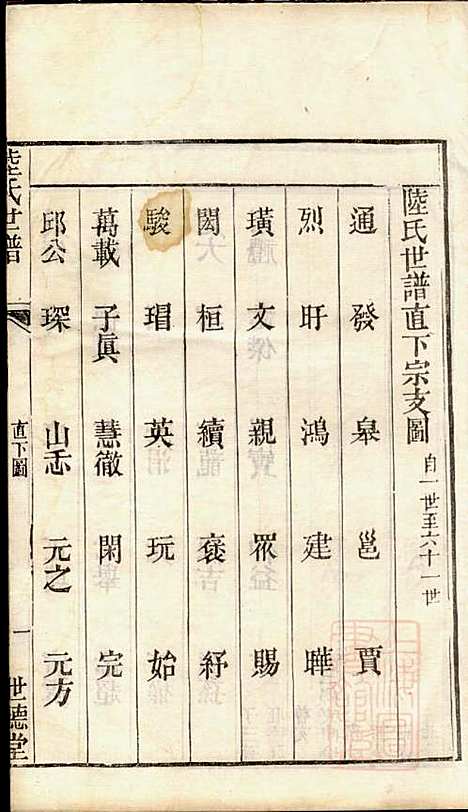 陸氏世譜直下宗支圖 自一世至六十一世
通 發 皋 邕 賈
烈 盱 鴻 建 曄
璜 文 親 眾 賜
閎 桓 續 褒 紓
駿 瑁 英 玩 始
萬載 子眞 慧徹 閑 完
邱公 琛 山志 元之 元方
陸氏世譜 直下圖 一 世德堂